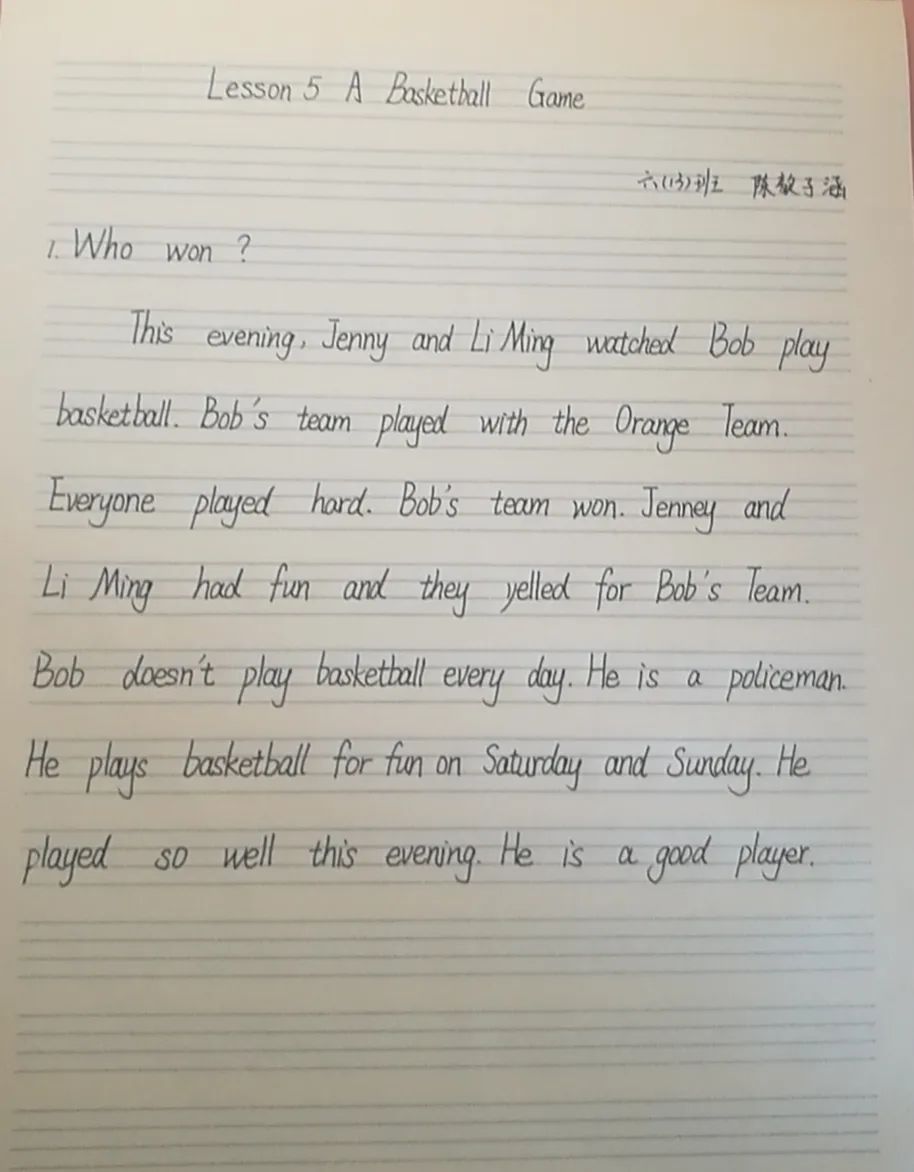 Lesson 5 A Basketball Game
六(13)班 陈敖子涵
1. Who won ?
This evening, Jenny and Li Ming watched Bob play
basketball. Bob's team played with the Orange Team.
Everyone played hard. Bob's team won. Jenney and
Li Ming had fun and they yelled for Bob's Team.
Bob doesn't play basketball every day. He is a policeman.
He plays basketball for fun on Saturday and Sunday. He
played so well this evening. He is a good player.